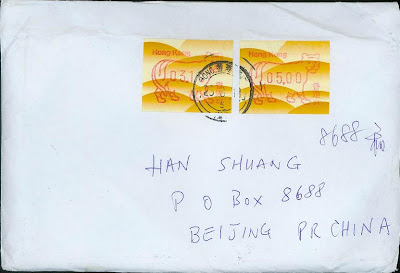 Hong Kong
Hong Kong
05.00
8688
HAN SHUANG
P O BOX 8688
BEIJING PR CHINA